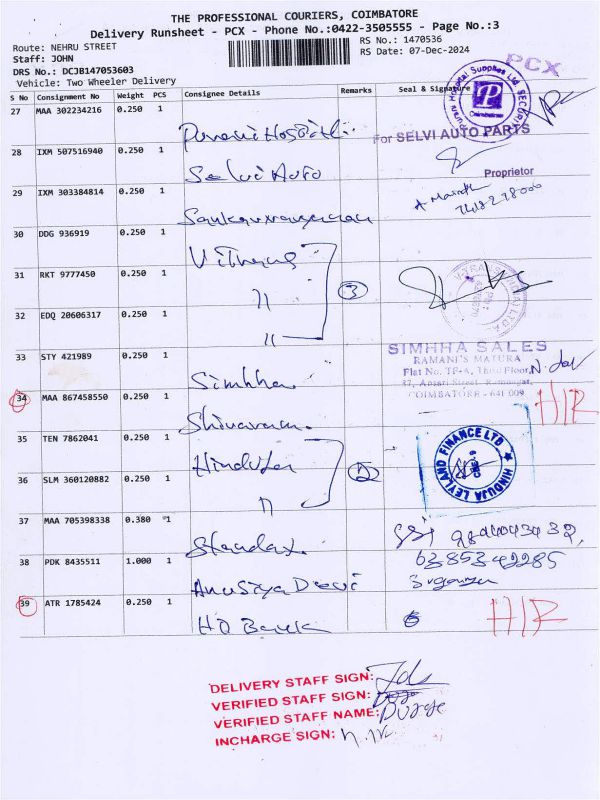 THE PROFESSIONAL COURIERS, COIMBATORE
Delivery Runsheet - PCX - Phone No.:0422-3505555 - Page No.:3
Route: NEHRU STREET
RS No.: 1470536
Staff: JOHN
RS Date: 07-Dec-2024
DRS No.: DCJB147053603
Vehicle: Two Wheeler Delivery
PCX
S No Consignment No Weight PCS Consignee Details Remarks Seal & Signature
27 MAA 302234216 0.250 1
Hospital Supplies Ltd SECURITY
Coimbatore
For SELVI AUTO PARTS
28 IXM 507516940 0.250 1 Selvi Auto
Proprietor
29 IXM 303384814 0.250 1
30 DDG 936919 0.250 1
31 RKT 9777450 0.250 1 " 3
32 EDQ 20606317 0.250 1 "
33 STY 421989 0.250 1 Simhha
SIMHHA SALES
RAMANI'S MATURA
Flat No. TF-A, Third Floor,
37, Ansari Street, Ramnagar,
COIMBATORE - 641 009
34 MAA 867458550 0.250 1 HIR
35 TEN 7862041 0.250 1 Hinduja
2
HINDUJA LEYLAND FINANCE LTD
36 SLM 360120882 0.250 1 "
37 MAA 705398338 0.380 1
38 PDK 8435511 1.000 1 Anusiya Devi
6385342285
39 ATR 1785424 0.250 1 HIR
DELIVERY STAFF SIGN:
VERIFIED STAFF SIGN:
VERIFIED STAFF NAME:
INCHARGE SIGN: